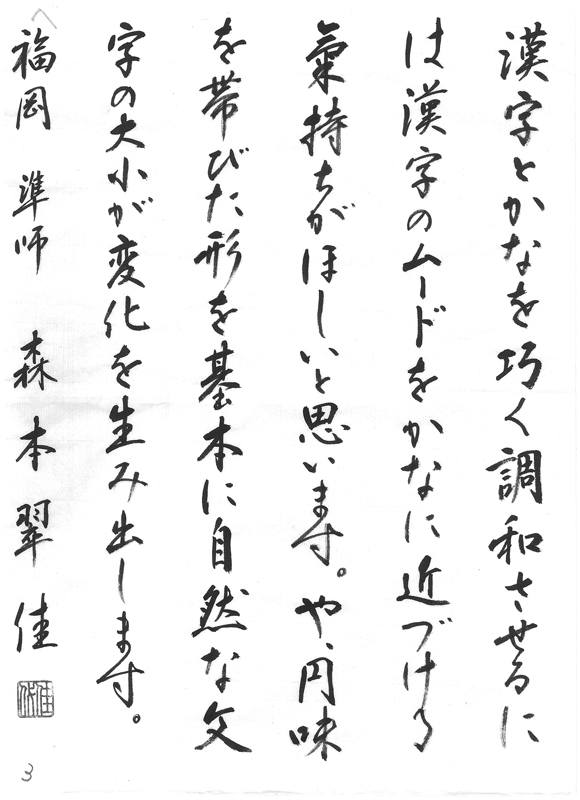 漢字とかなを巧く調和させるに
は漢字のムードをかなに近づける
氣持ちがほしいと思います。やゝ円味
を帯びた形を基本に自然な文
字の大小が変化を生み出します。
福岡 準師 森本翠佳
3